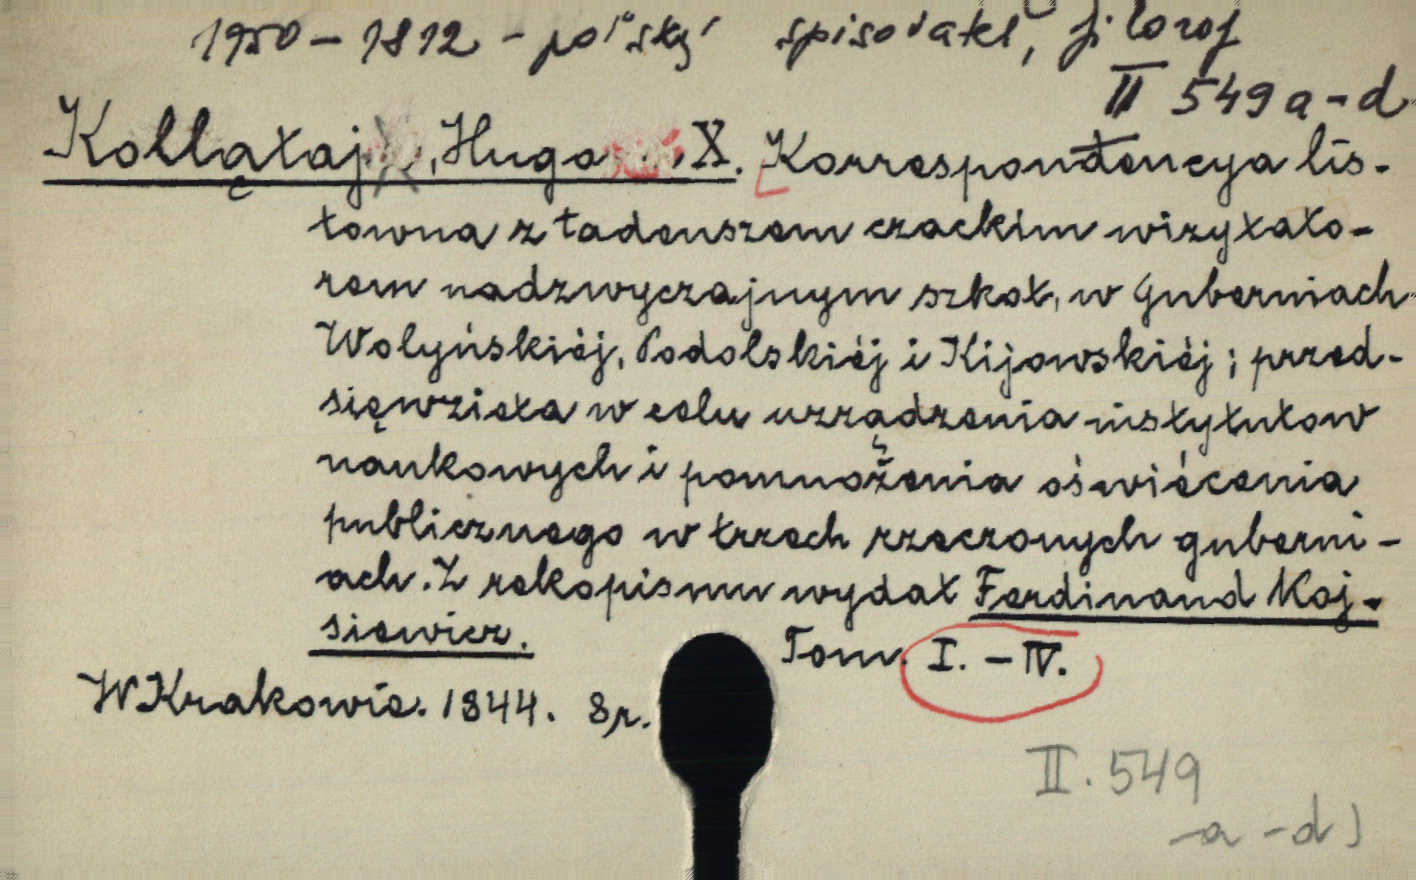 1750 – 1812 – polský spisovatel, filozof
II 549 a - d
Kollątaj, Hugo X. Korrespondencya lis-
towna z tadeuszem czackim wizytato-
rem nadzwyczajnym szkoł, w guberniach
Wołyńskiéj, Podolskiéj i Kijowskiéj; przed-
sięwzieta w celu urządzenia instytutow
naukowych i pomnożenia oświécenia
publicznego w trzech rzeczonych guberni-
ach. Z rekopismu wydał Ferdinand Koj-
siewicz. Tom. I. – IV.
W Krakowie. 1844. 8r.
II. 549
a - d)